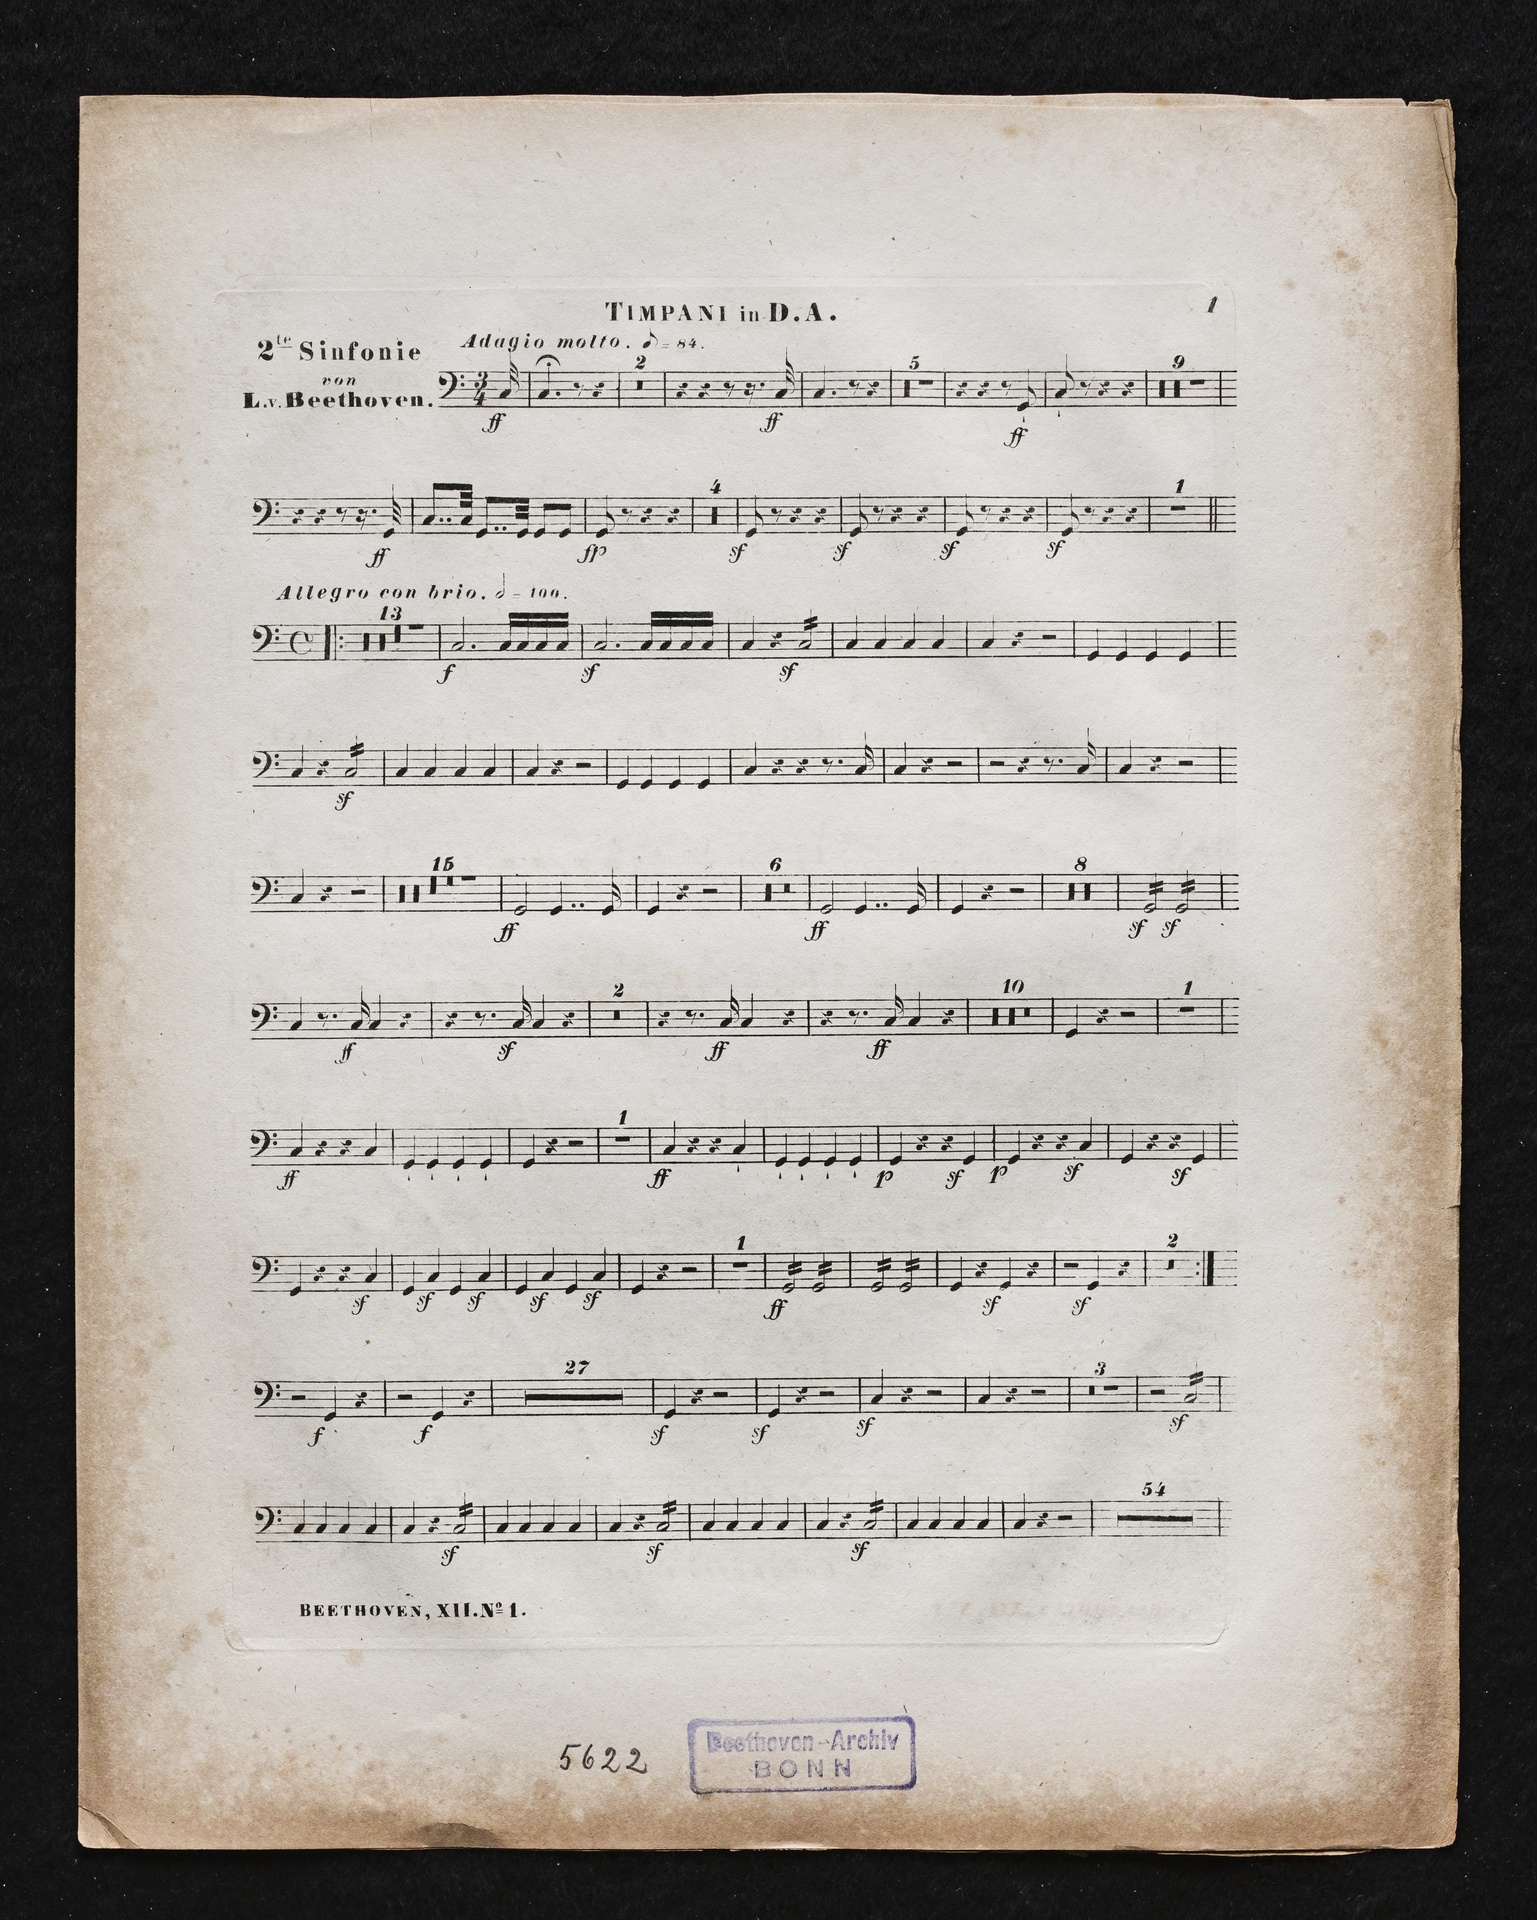 TIMPANI in D.A.
1
2te Sinfonie
von
L.v. Beethoven.
Adagio molto. ♪ = 84.
2
5
9
ff
ff
ff
4
1
ff
fp
sf
sf
sf
sf
Allegro con brio. 𝅗𝅥 = 100.
13
f
sf
sf
sf
15
6
8
ff
ff
sf sf
2
10
1
ff
sf
ff
ff
1
ff
ff
p
sf
p
sf
sf
1
2
sf
sf
sf
sf
sf
ff
sf
sf
27
3
f
f
sf
sf
sf
sf
54
sf
sf
sf
BEETHOVEN, XII. No 1.
5622
Beethoven-Archiv
BONN